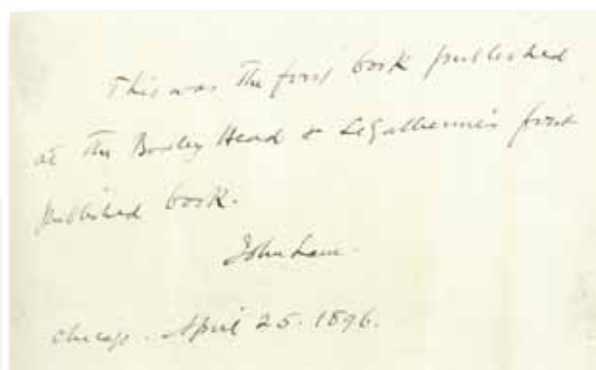 This was the first book published
at the Bodley Head & LeGallienne's first
published book.
John Lane.
Chicago. April 25. 1896.